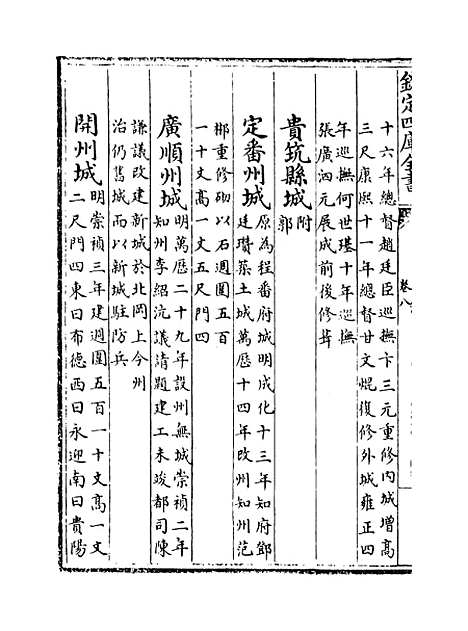 欽定四庫全書
卷八
十六年總督趙廷臣巡撫卞三元重修內城增高
三尺康熙十一年總督甘文焜復修外城雍正四
年巡撫何世璂十年巡撫
張廣泗元展成前後修葺
貴筑縣城附
郭
定番州城原為程番府城明成化十三年知府鄧
廷瓚築土城萬歷十四年改州知州范
郴重修砌以石週圍五百
一十丈高一丈五尺門四
廣順州城明萬歷二十九年設州無城崇禎二年
知州李紹沆議請題建工未竣都司陳
謙議改建新城於北岡上今州
治仍舊城而以新城駐防兵
開州城明崇禎三年建週圍五百一十丈高一丈
二尺門四東曰布德西曰永迎南曰貴陽